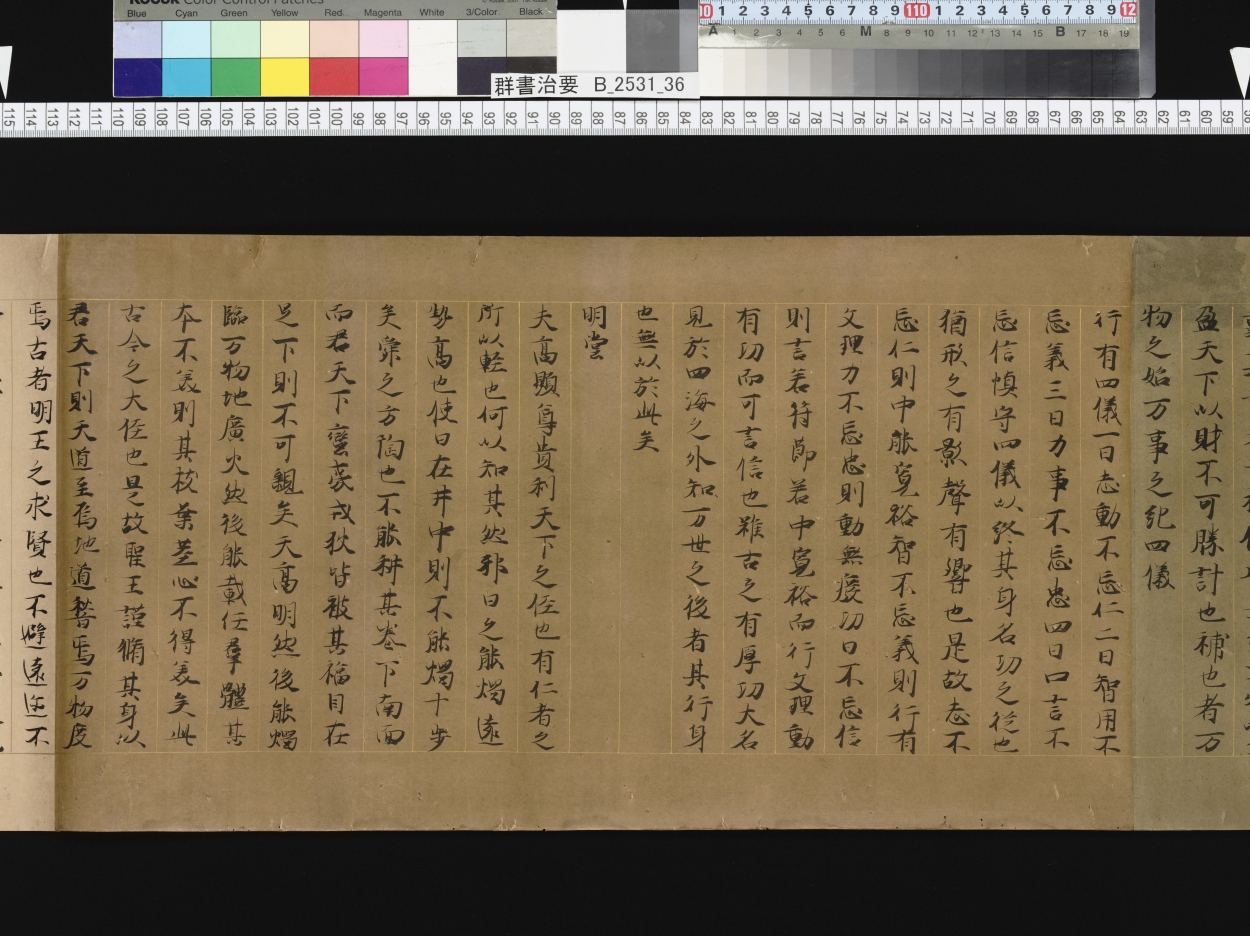 KODAK Color Control Patches
Blue Cyan Green Yellow Red Magenta White 3/Color Black
群書治要 B_2531_36
盈天下以財不可勝計也補也者万
物之始万事之紀四儀
行有四儀一曰志動不忘仁二曰智用不
忘義三曰力事不忘忠四曰口言不
忘信慎守四儀以終其身名功之從也
猶形之有影聲有響也是故志不
忘仁則中能寬裕智不忘義則行有
文理力不忘忠則動無廢功口不忘信
則言若符節若中寬裕而行文理動
有功而可言信也雖古之有厚功大名
見於四海之外知万世之後者其行身
也無以於此矣
明堂
夫高顯尊貴利天下之侄也有仁者之
所以軽也何以知其然耶日之能燭遠
勢高也使日在井中則不能燭十步
矣舜之方陶也不能耕其巷下南面
而君天下蠻夷戎狄皆被其福目在
足下則不可視矣天高明然後能燭
臨万物地廣火然後能載任羣體其
本不美則其枝葉莖心不得美矣此
古今之大侄也是故聖王謹脩其身以
君天下則天道至焉地道稽焉万物度
焉古者明王之求賢也不避遠近不